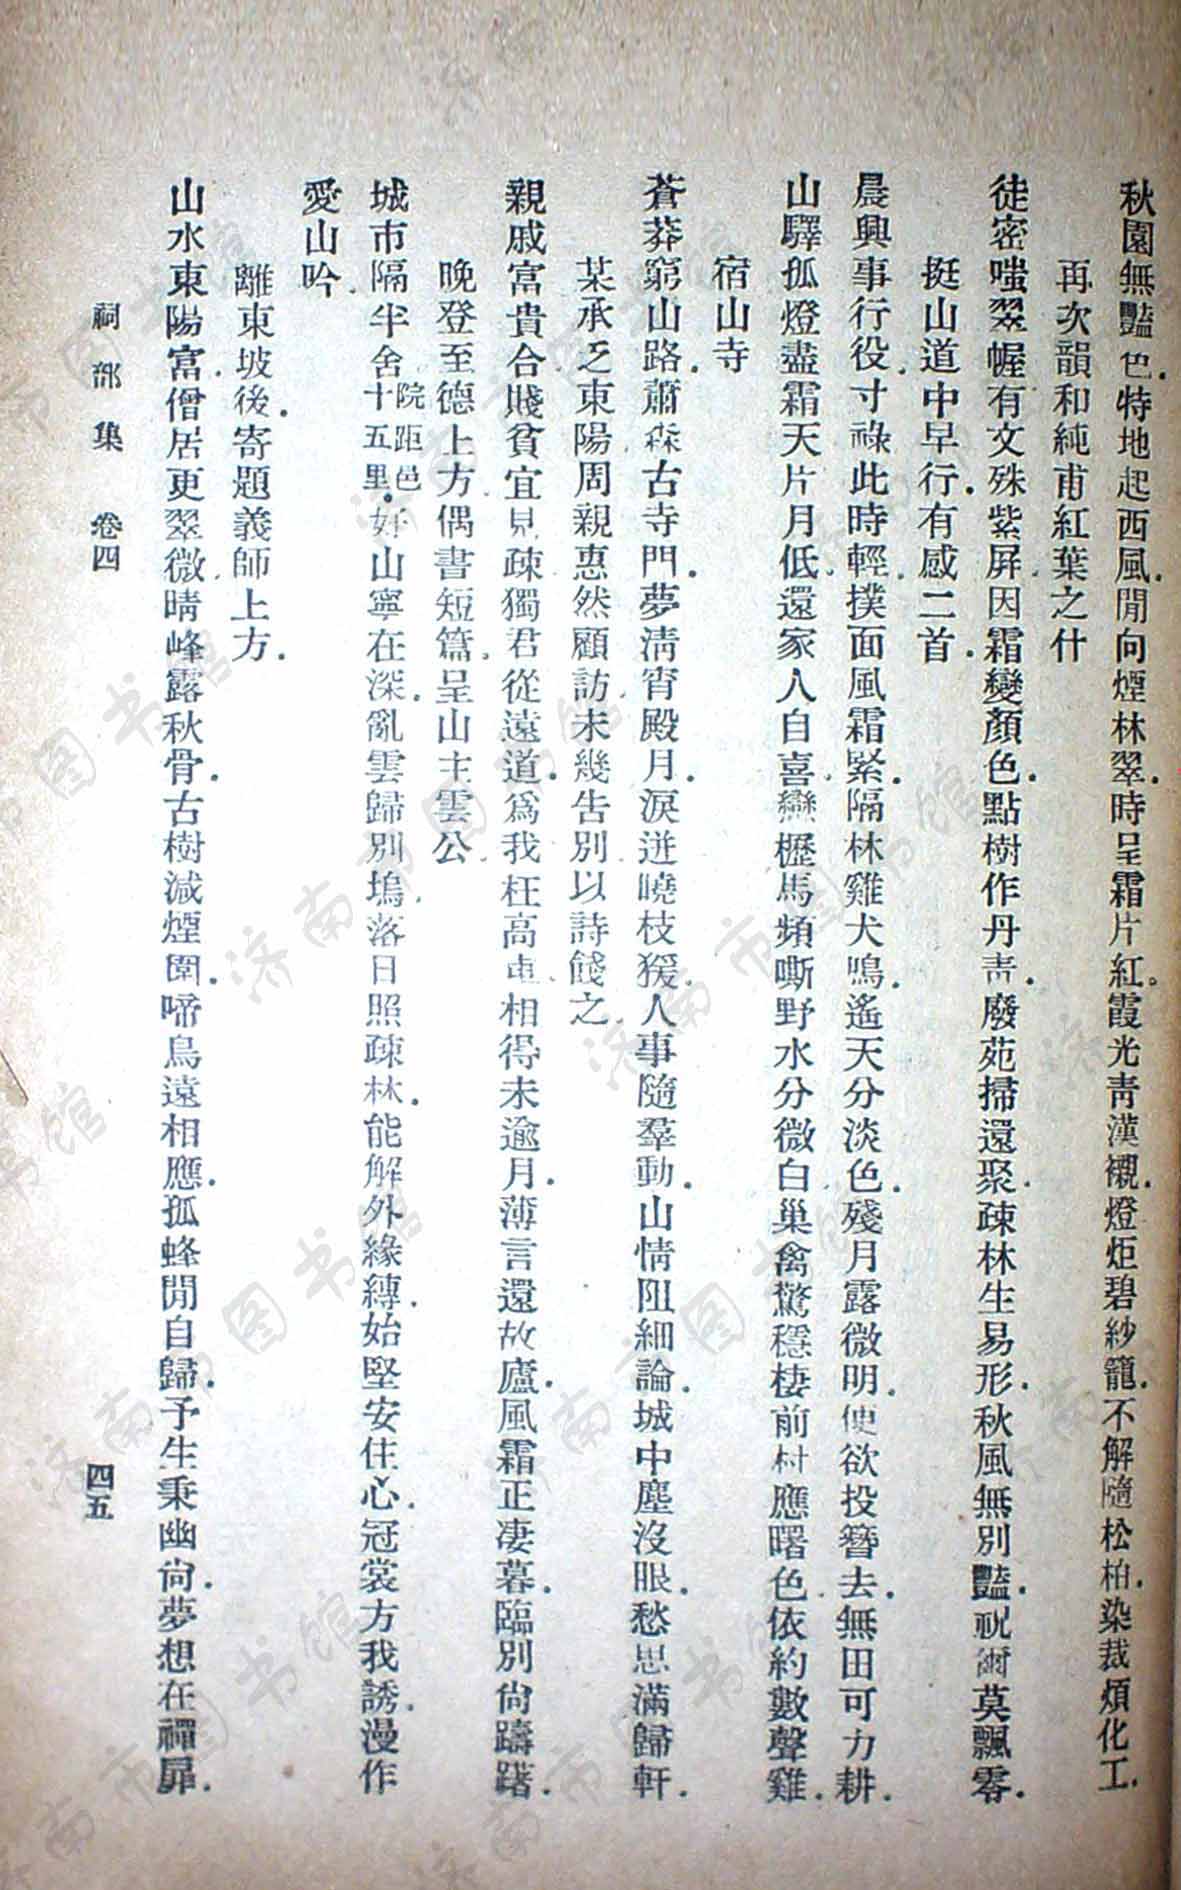 秋園無豔色.特地起西風.閒向煙林翠.時呈霜片紅。霞光青漢襯.燈炬碧紗籠.不解隨松柏.染裁煩化工.
再次韻和純甫紅葉之什
徒密嗤翠幄有文殊紫屏因霜變顏色.點樹作丹靑.廢苑掃還聚.疎林生易形.秋風無別豔.祝爾莫飄零.
挺山道中早行.有感二首.
晨興事行役.寸祿此時輕.撲面風霜緊.隔林雞犬鳴.遙天分淡色.殘月露微明.便欲投簪去.無田可力耕.
山驛孤燈盡霜天片月低.還家人自喜.戀櫪馬頻嘶野水分微白.巢禽驚穩棲前村應曙色.依約數聲雞.
宿山寺
蒼莽窮山路.蕭森古寺門.夢淸宵殿月.淚迸嶢枝猨.人事隨羣動.山情阻細論.城中塵沒眼.愁思滿歸軒.
某承乏東陽周親惠然顧訪未幾吿別以詩餞之.
親戚富貴合.賤貧宜見疎獨君從遠道.爲我枉高車.相得未逾月.薄言還故廬.風霜正凄暮.臨別尙躊躇.
晚登至德上方偶書短篇.呈山主雲公.
城市隔半舍院距邑十五里.好山寧在深.亂雲歸別塢落日照疎林.能解外緣縛.始堅安住心.冠裳方我誘.漫作
愛山吟.
離東坡後.寄題義師上方.
山水東陽富.僧居更翠微.晴峰露秋骨.古樹減煙圍.啼鳥遠相應.孤蜂閒自歸.予生秉幽尙.夢想在禪扉.
祠部集 卷四
四五
济南市图书馆